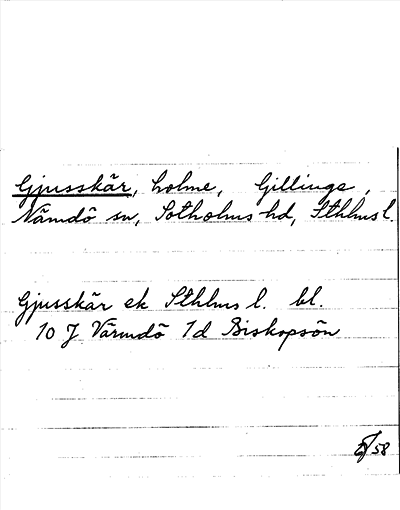 Gjusskär, holme, Gillinge,
Nämdö sn, Sotholms hd, Sthlms l.
Gjusskär ek Sthlms l. bl.
10 J Värmdö 1d Biskopsön
58